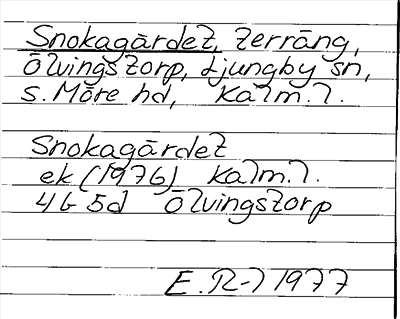 Snokagärdet, terräng,
Ölvingstorp, Ljungby sn,
S. Möre hd, Kalm. l.
Snokagärdet
ek (1976) Kalm. l.
4G 5d Ölvingstorp
E. R-l 1977